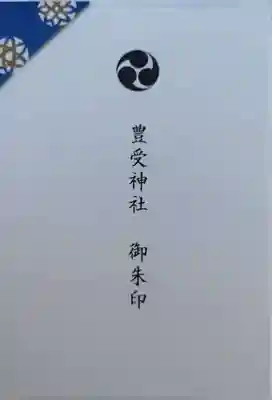 豊受神社　御朱印